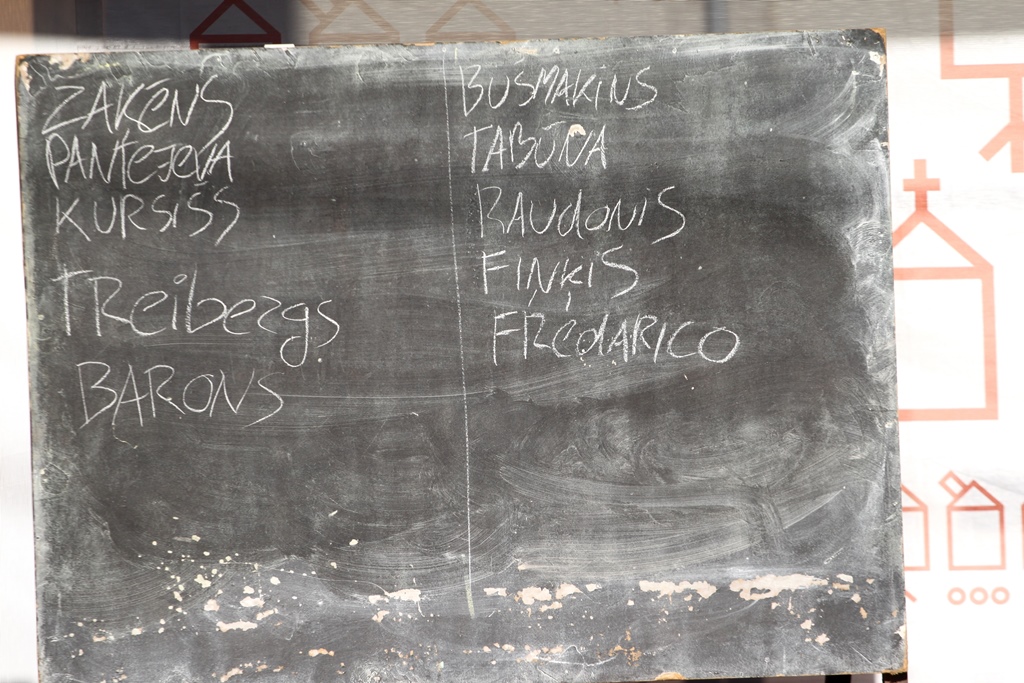 ZAKENS
PANTEJEVA
KURSIŠS
TReibergs
BARONS
BUSMAKINS
TABŪNA
RAUdONIS
FIŅĶIS
FREdARICO